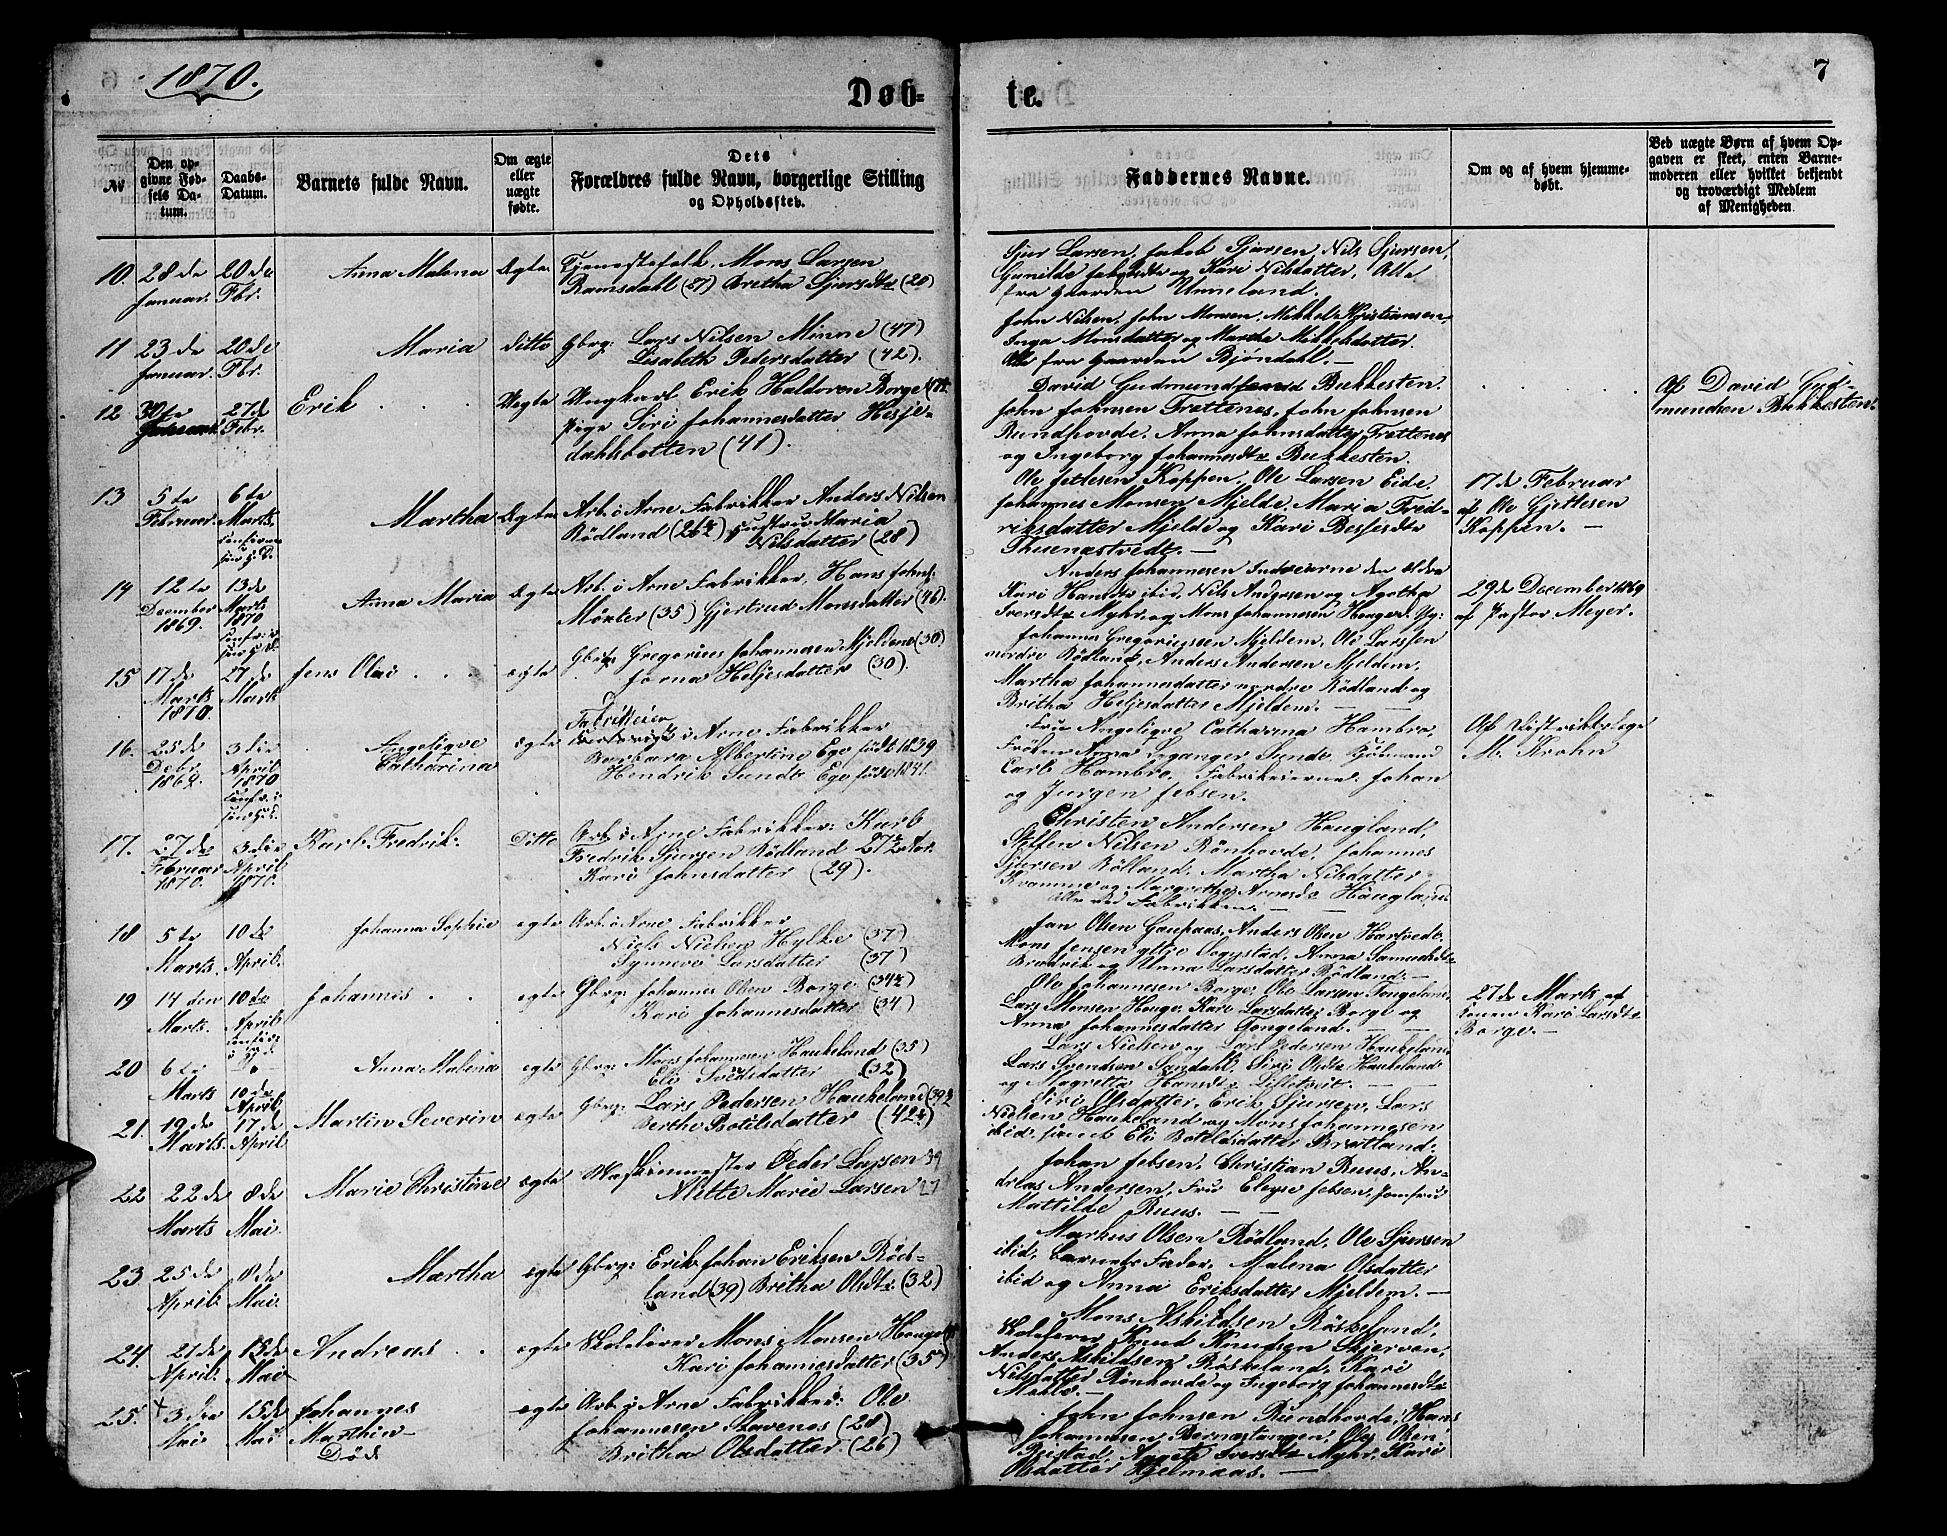 1870.
Døb-
te.
7
№
Den op-
givne Fød-
sels Da-
tum.
Daabs-
Datum.
Barnets fulde Navn.
Om ægte
eller
uægte
fødte.
Dets
Forældres fulde Navn, borgerlige Stilling
og Opholdssted.
Faddernes Navne.
Om og af hvem hjemme-
døbt.
Ved uægte Børn af hvem Op-
gaven er skeet, enten Barne-
moderen eller hvilket bekjendt
og troværdigt Medlem
af Menigheden.
10. 28de Januar. 20de Fbr. Anna Malena Ægte
Tjenestefolk, Mons Larsen
Ramsdahl (27) Bretha Sjursdtr (20)
Sjur Larsen, Jakob Sjursen, Nils Sjursen,
Gunilde og Kari Nilsdatter, Alle
fra Gaarden Unneland.
11 23de Januar. 20de Fbr. Maria ditto
Gbrg: Lars Nilsen Minne (47)
Lisabeth Pedersdatter (42).
John Nilsen, John Monsen, Mikkel Kristiansen,
Inga Monsdatter og Marthe Mikkelsdatter.
Alle fra Gaarden Bjøndahl. —
12 30te Januar. 27de Febr. Erik Uægte
Ungkarl Erik Haldoren Borge
Pige Siri Johannesdatter Hesje-
dahlsbotten (41).
David Gudmundsen Bukkesten.
John Johnsen Trettenes, John Johnsen
Rundhovde, Anna Johnsdatter Trettenes
og Ingeborg Johannesdtr Bukkesten.
Af David Gud-
mundsen Bukkesten.
13 5te Februar. 6te Marts. Martha Ægte
Arb. i Arne Fabrikker Anders Nilsen
Rødland (26½) Hustru Maria
Nilsdatter (28)
Ole Jetlesen Koppen, Ole Larsen Eide.
Johannes Monsen Mjelde, Maria Fred-
riksdatter Mjelde og Kari
Thunæstvedt. —
17de Februar
af Ole Gjetlesen
Koppen. —
14 12te December 1869. 13de Marts 1870 Anna Maria Ægte
Arb. i Arne Fabrikker, Hans Johns.
Mønter (35) Gjertrud Monsdatter (46).
Anders Johannesen Indvierne den ældre
Kari Hansdtr ibid, Nils Andersen og Agotha
Iversdtr Myhr, og Mons Johannesen Houger.
29de December 1869
af Pastor Meyer.
15 17de Marts 1870. 27de Marts Jens Olai ægte
Gbrg Gregorius Johannesen Mjeldem (30)
Helgesdatter (30).
Johannes Gregoriussen Mjeldem, Ole Larssen
nordre Rødland, Anders Andersen Mjeldem,
Martha Johannesdatter nordre Rødland og
Britha Heljesdatter Mjeldem. —
16. 25de Debr 1869. 3die April 1870 Angeliqve
Catharina ægte
Fabrikeier
i Arne Fabrikker
Barbara Albertine Ege født 1839
Hendrik Sundt Ege født 1841.
Fru Angelique Catharina Hambro,
Frøken Anna Leganger Sunde, Kjøbmand
Carl Hambro, Fabrikeierne: Johan
og Jurgen Jebsen.
Af Distriktslæge
M. Krohn
17. 27de Februar 1870. 3die April 1870. Karl Fredrik. Ditto
Arb. i Arne Fabrikker: Karl
Fredrik Sjursen Rødland 27½ Aar.
Kari Johnsdatter (29).
Christen Andersen Haugland,
Steffen Nilsen Rønhovde, Johannes
Sjursen Rødland, Martha Nilsdatter
Kvamme og Margrethe Arnesdtr Haugland
Alle ved Fabrikken. —
18 5te Marts. 10de April. Johanna Sophie ægte
Arb. i Arne Fabrikker
Niels Nielsen Hylke (37)
Synneve Larsdatter (37)
Jan Olsen Gaupaas, Anders Olsen Hartvedt,
Mons Jensen ytre Sogystad, Anna Samuelsdtr
Bradvik og Anna Larsdatter Rødland. —
19 14den Marts. 10de April. Johannes ægte
Gbrg: Johannes Olsen Borge (34½)
Kari Johannesdatter (34)
Ole Johannesen Borge, Ole Larsen Tongeland
Lars Monsen Houge, Kari Larsdatter Borge og
Anna Johannesdatter Tongeland. —
27de Marts af
konen Kari Larsdtr
Borge. —
20 6te Marts 10de April Anna Malena ægte
Gbrg: Mons Johannesen Haukeland (35)
Eli Svedsdatter (32)
Lars Nielsen og Lars Pedersen Haukeland
Lars Svendsen Sandahl, Siri Olsdtr Haukeland
og Magretta Hansdtr —
21. 19de Marts. 17de April. Martin Severin ægte
Gbrg: Lars Pedersen Haukeland (39½
Berthe Botilsdatter (42½)
Siri Olsdatter, Erik Sjursen, Lars
Nielsen Haukeland og Mons Johannesen
ibid. samt Eli Boteldsdatter Bratland.
22 22de Marts 8de Mai. Marie Christine ægte
Maskinmester Peder Larsen 39
Mette Marie Larsen 27
Johan Jebsen, Christian Ruus, An-
dreas Andersen, Fru Eleyse Jebsen, Jomfru
Mattilde Ruus. —
23 25de April. 8de Mai. Martha ægte
Gbrg: Erik Johan Eriksen Rød-
land (39) Britha Olsdtr (32)
Markus Olsen Rødland, Ole Sjursen
ibid, barnets Fader, Malena Olsdatter
ibid og Anna Eriksdatter Mjeldem. —
24. 21de April. 15de Mai Andreas ægte
Skolelærer Mons Monsen Houge
Kari Johannesdatter (35)
Mons Asbildsen Røskeland,
Skolelærer Knud Knudsen Skjerven,
Anders Asbildsen Røskeland, Kari
Nilsdatter Rønhovde og Ingeborg Johannesdtr
Mohle —
25. 3die Mai 15de Mai Johannes
Marthin
Død ægte
Arb: i Arne Fabrikker: Ole
Johannesen Stavenes (28)
Britha Olsdatter (26)
John Johnsen Rundhovde, Hans
Johannesen Bernæstangen, Ole Olsen
Reistad, Agate Iversdtr Myhr, Kari
Olsdatter Hjelmaas. —